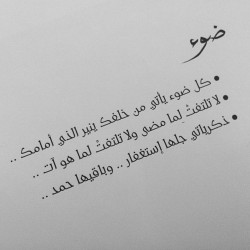 ضوء
• كل ضوء يأتي من خلفك ينير الذي أمامك ..
• لا تلتفتْ لِما مضى ولا تلتفتْ لما هو آت ..
• ذكرياتي جلها إستغفار .. وباقيها حمد ..